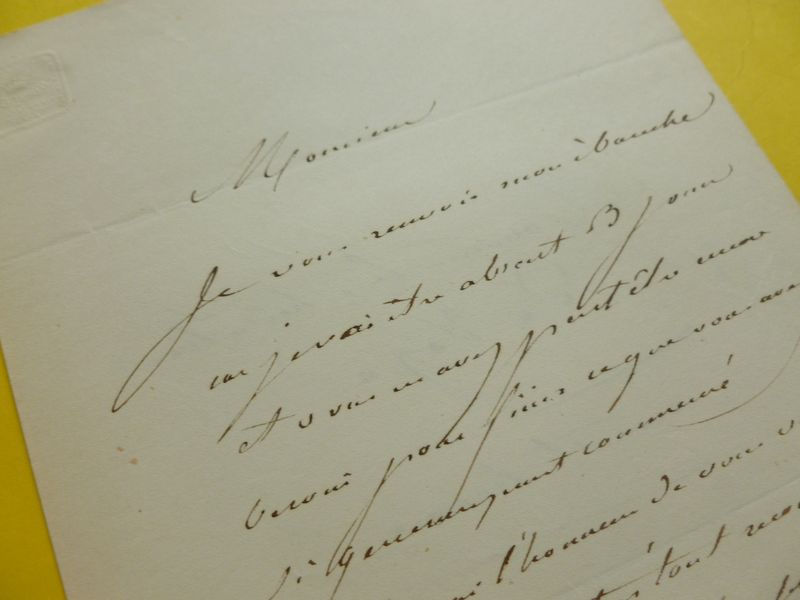 Monsieur
Je vous renvoie mon ébauche
car je vais être absent 13 jours
et vous en avez peut être encore
besoin pour finir ce que vous avez
si généreusement commencé
l'honneur de vous
tout